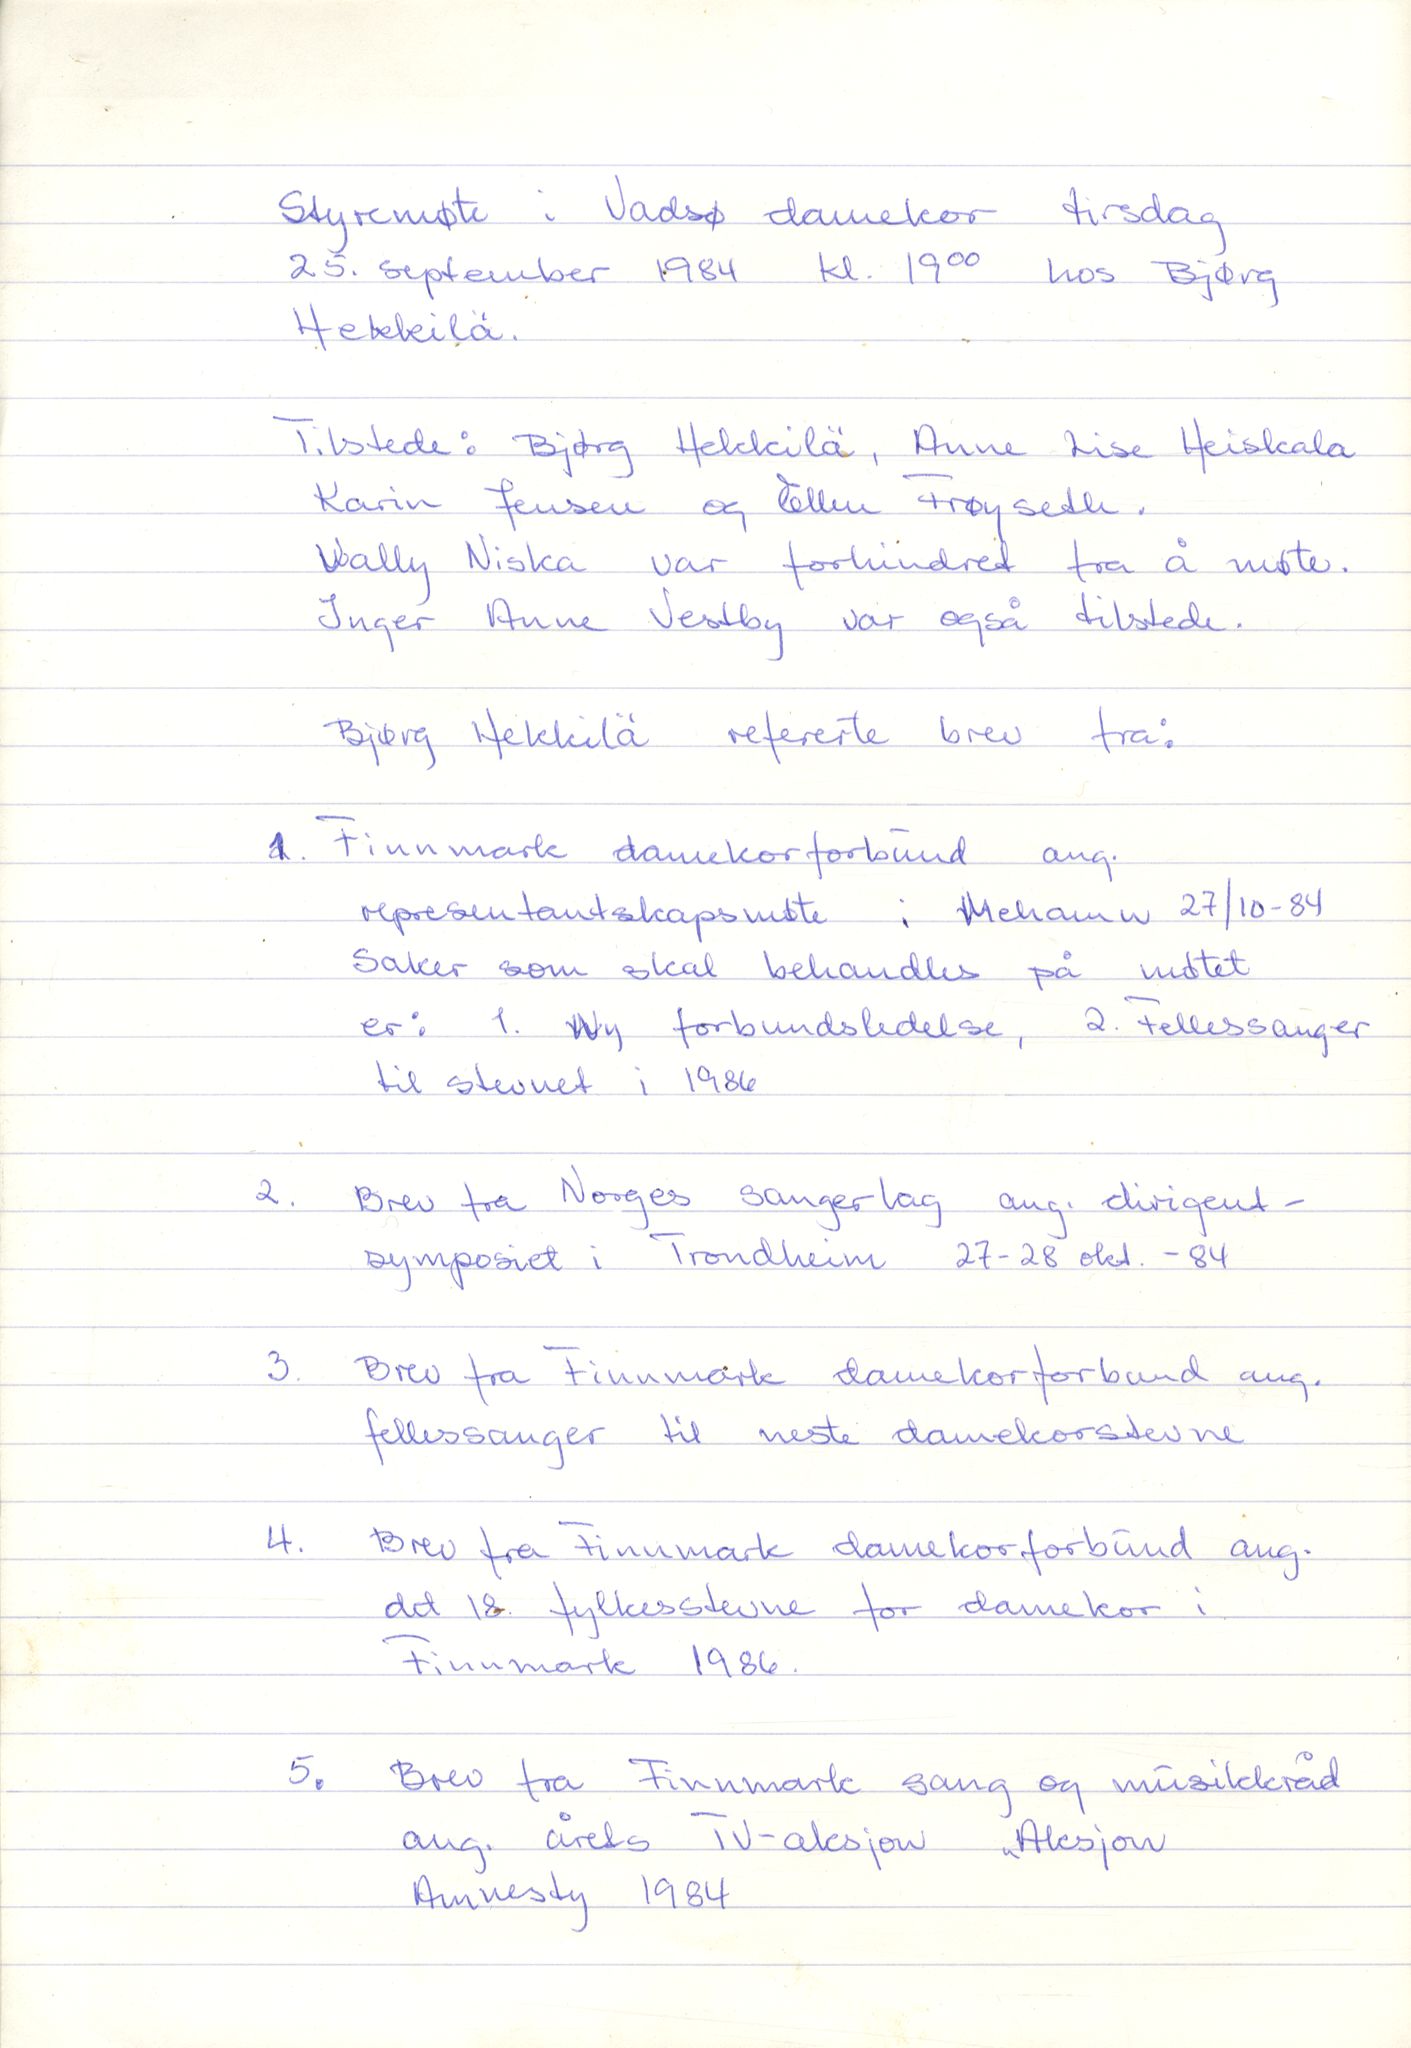 Styremøte i Vadsø damekor tirsdag
25. september 1984 kl. 19⁰⁰ hos Bjørg
Hekkilä.
Tilstede: Bjørg Hekkilä, Anne Lise Heiskala
Karin Jensen og Ellen Frøyseth.
Wally Niska var forhindret fra å møte.
Inger Anne Vestby var også tilstede.
Bjørg Hekkilä refererte brev fra:
1. Finnmark damekorforbund ang.
representantskapsmøte i Mehamn 27/10-84
Saker som skal behandles på møtet
er: 1. Ny forbundsledelse, 2. Fellessanger
til stevnet i 1986
2. Brev fra Norges sangerlag ang. dirigent-
symposiet i Trondheim 27-28 okt. -84
3. Brev fra Finnmark damekorforbund ang.
fellessanger til neste damekorstevne
4. Brev fra Finnmark damekorforbund ang.
det 18. fylkesstevne for damekor i
Finnmark 1986.
5. Brev fra Finnmark sang og musikkråd
ang. årets TV-aksjon „Aksjon
Amnesty 1984